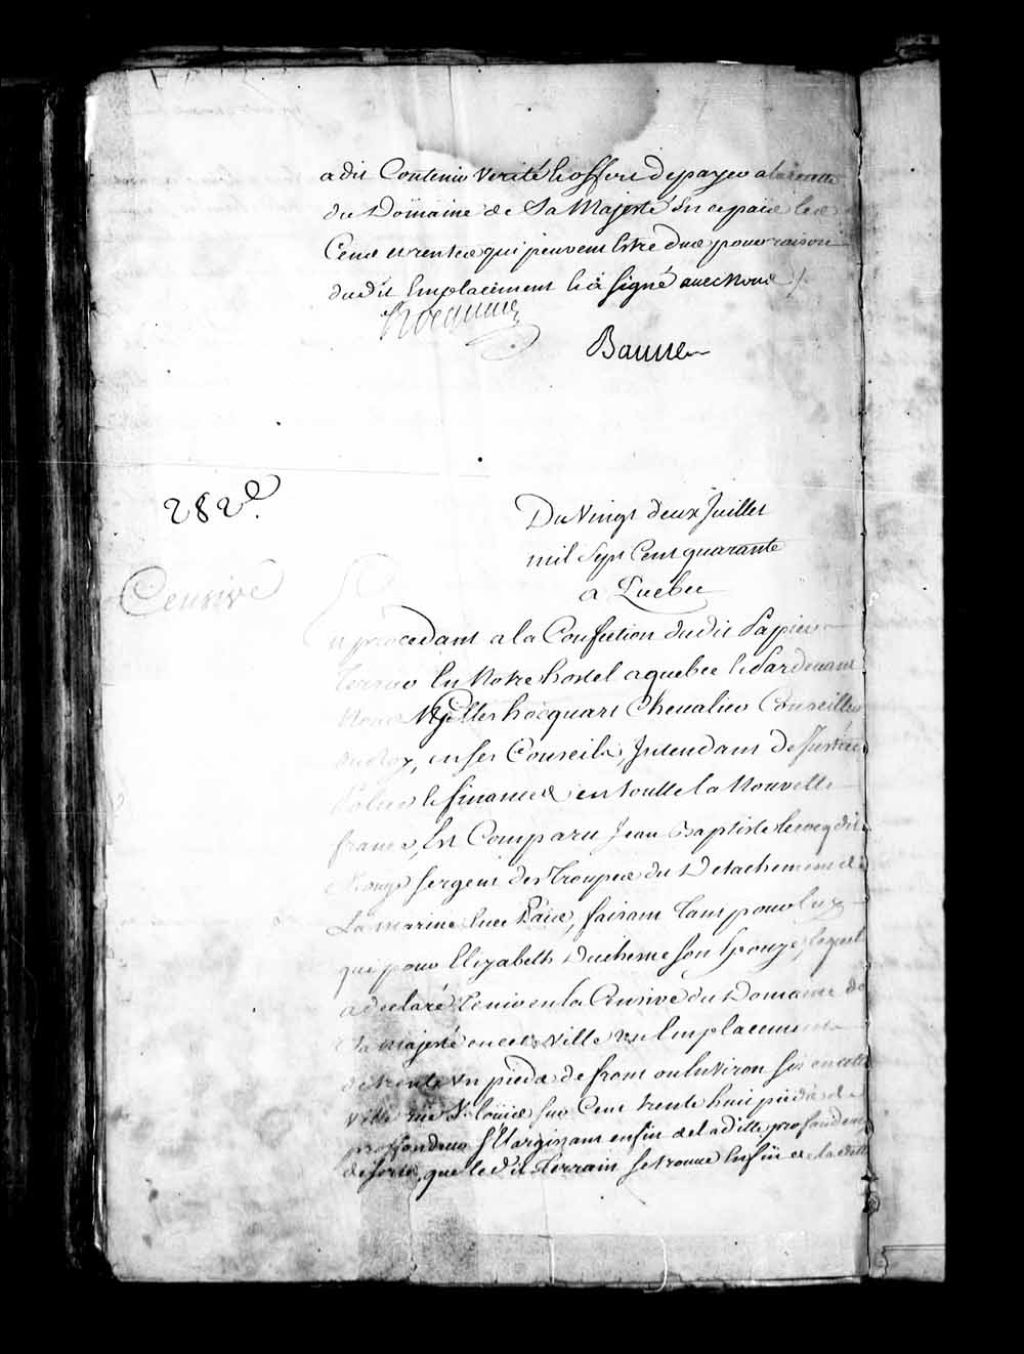 a dit Contenir verité & offert de payer a la recette
du Domaine de Sa Majesté En ce païs les
Cens et rentes qui peuvent Estre dus pour raison
dudit Emplacement & a signé avec Nous ./.
Hocquart
Baune
282e
Censive
Du Vingt deux Juillet
mil Sept Cent quarante
a Quebec
En procedant a la Confection dudit Pappier
terrier En Notre hostel a quebec & Pardevant
Nous Gilles hocquart Chevalier Conseiller
du Roy, en ses Conseils, Intendant De Justice
Police & finances en toutte la Nouvelle
france, Est Comparu Jean Baptiste Lecocq dit
sergent des Troupes du Detachement de
La marine En ce Païs, faisant tant pour luy
que pour Elizabeth Duchesne son Epouze, lequel
a declaré Tenir en la Censive du Domaine de
Sa Majesté en cette Ville un Emplacement
de trente un pieds de front ou Environ sis en cette
Ville rue St. Loüis sur Cent trente huit pieds de
proffondeur S'Elargissant enfin de laditte profondeur
de sorte, que ledit Terrain se trouve Enfin de laditte